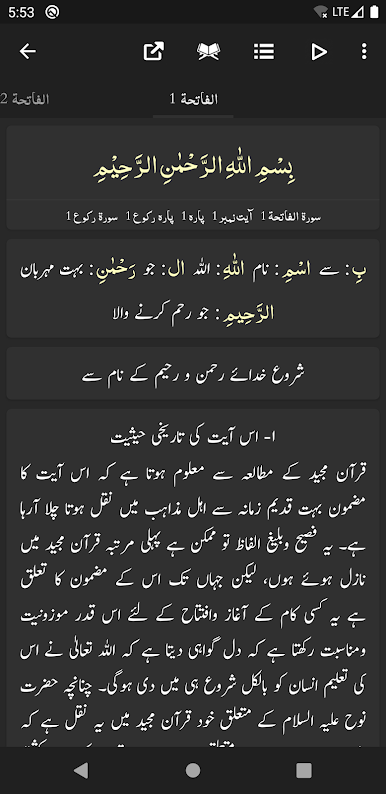 5:53 LTE
الفاتحة 1 الفاتحة 2
بِسْمِ اللّٰهِ الرَّحْمٰنِ الرَّحِيْمِ
سورة الفاتحة 1 آیت نمبر 1 پارہ 1 پارہ رکوع 1 سورة رکوع 1
بِ: سے اسْمِ: نام اللّٰهِ: اللہ ال: جو رَحْمٰنِ: بہت مہربان
الرَّحِيمِ: جو رحم کرنے والا
شروع خدائے رحمن و رحیم کے نام سے
۱- اس آیت کی تاریخی حیثیت
قرآن مجید کے مطالعہ سے معلوم ہوتا ہے کہ اس آیت کا
مضمون بہت قدیم زمانہ سے اہل مذاہب میں نقل ہوتا چلا آرہا
ہے۔ یہ فصیح وبلیغ الفاظ تو ممکن ہے پہلی مرتبہ قرآن مجید میں
نازل ہوئے ہوں، لیکن جہاں تک اس کے مضمون کا تعلق
ہے یہ کسی کام کے آغاز وافتتاح کے لئے اس قدر موزونیت
ومناسبت رکھتا ہے کہ دل گواہی دیتا ہے کہ اللہ تعالیٰ نے اس
کی تعلیم انسان کو بالکل شروع ہی میں دی ہوگی۔ چنانچہ حضرت
نوح علیہ السلام کے متعلق خود قرآن مجید میں یہ نقل ہے کہ